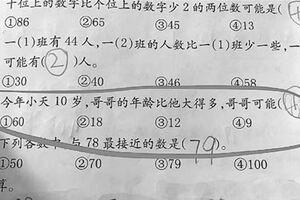 十位上的数字比个位上的数字少2的两位数可能是(
①86 ②65 ③45 ④13
一(1)班有44人,一(2)班的人数比一(1)班少一些,一
可能有(2)人。
①30 ②40 ③46 ④58
今年小天10岁,哥哥的年龄比他大得多,哥哥可能(
①60 ②18 ③12 ④9
下列各数中,与78最接近的数是(79)。
①50 ②70 ③79 ④100
算。